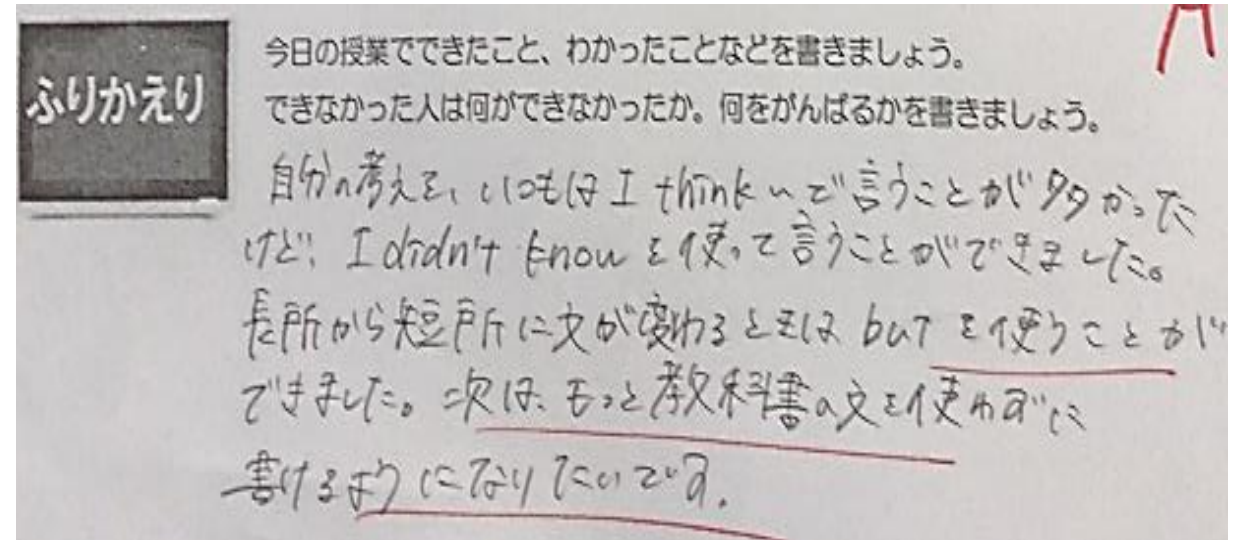 ふりかえり
今日の授業でできたこと、わかったことなどを書きましょう。
できなかった人は何ができなかったか。何をがんばるかを書きましょう。
自分の考えを、いつもは I think ~ で言うことが多かった
けど、I didn't know を使って言うことができました。
長所から短所に文が変わるときは but を使うことが
できました。次は、もっと教科書の文を使わずに
書けるようになりたいです。